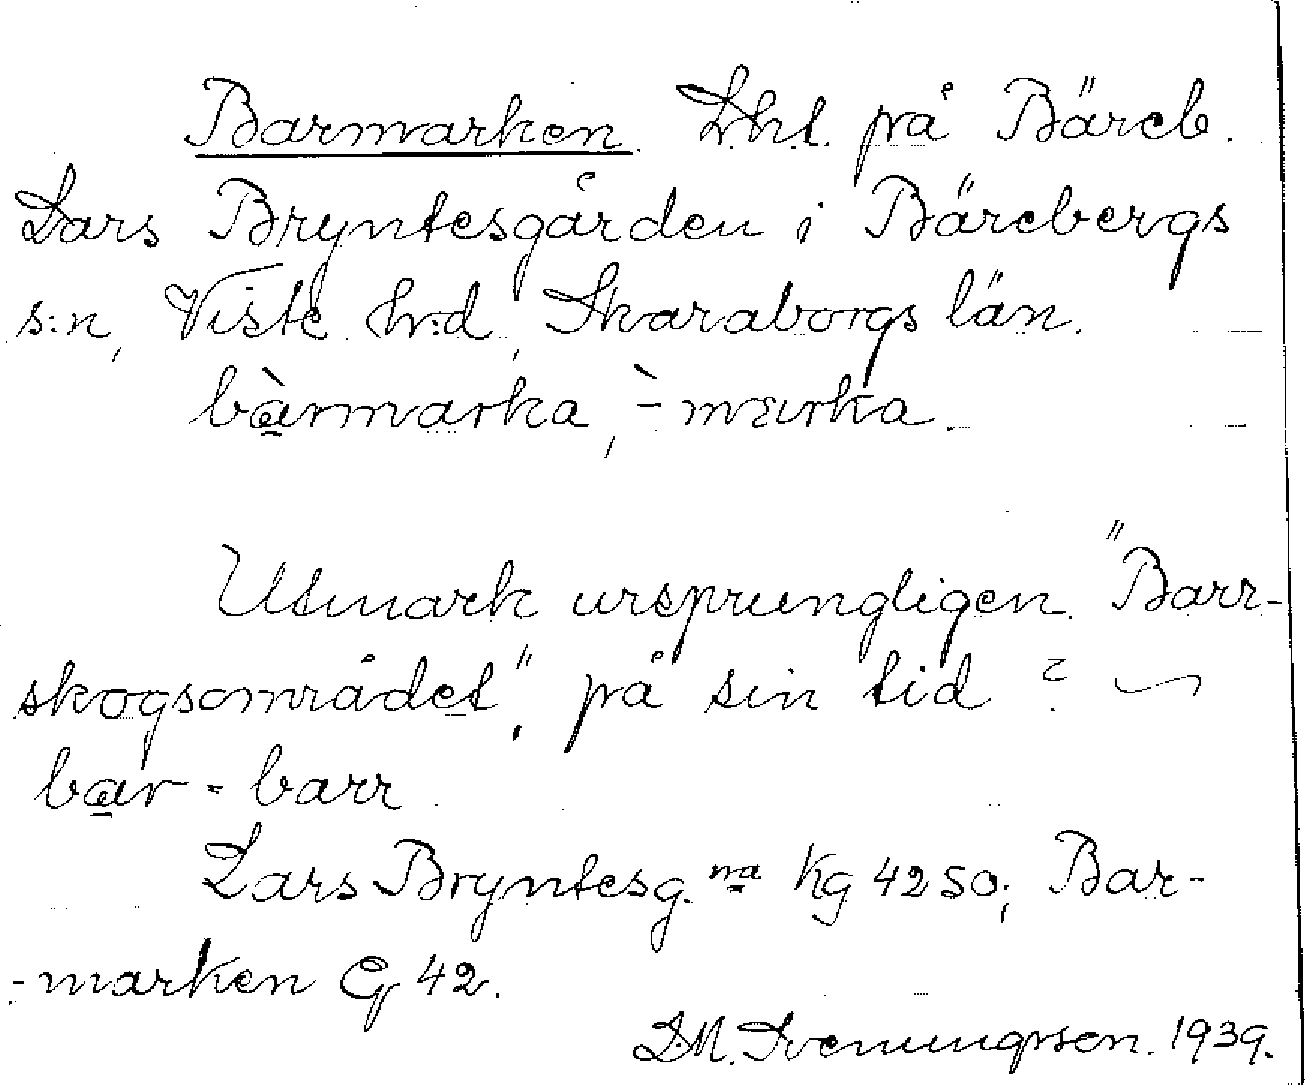 Barmarken. Lht. på Bäreb.
Lars Bryntesgården i Bärebergs
s:n, Viste hrd, Skaraborgs län.
bàrmarka, -̀ mærka.
Utmark ursprungligen. "Barr-
skogsområdet", på sin tid?
bar = barr.
Lars Bryntesg. na Kg 42 50; Bar-
-marken G 42.
D.M. Sveningsson. 1939.